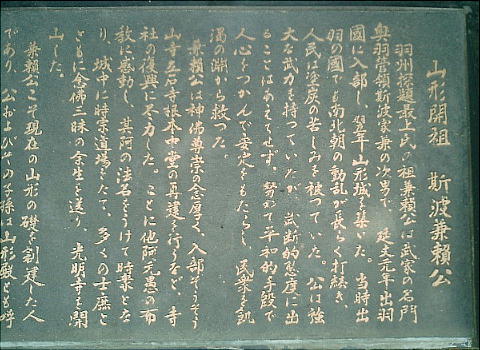 山形開祖　斯波兼頼公
羽州探題最上氏の祖兼頼公は武家の名門
奥羽管領斯波家兼の次男で、延文元年出羽
國に入部し、翌年山形城を築いた。当時出
羽の國でも南北朝の動乱が長らく打続き、
人民は塗炭の苦しみを被つていた。公は強
大な武力を持つていたが、武断的態度に出
ることはあえてせず、努めて平和的手段で
人心をつかんで安定をもたらし、民衆を飢
渇の淵から救つた。
兼頼公は神佛尊崇の念厚く、入部そうそう
山寺立石寺根本中堂の再建を行うなど、寺
社の復興に尽力した。ことに他阿元愚の布
教に感動し、其阿の法名をうけて時衆とな
り、城中に時宗道場をたて、多くの士庶と
ともに念佛三昧の余生を送り、光明寺を開
山した。
兼頼公こそ現在の山形の礎を創建した人
であり、公およびその子孫は山形殿とも呼